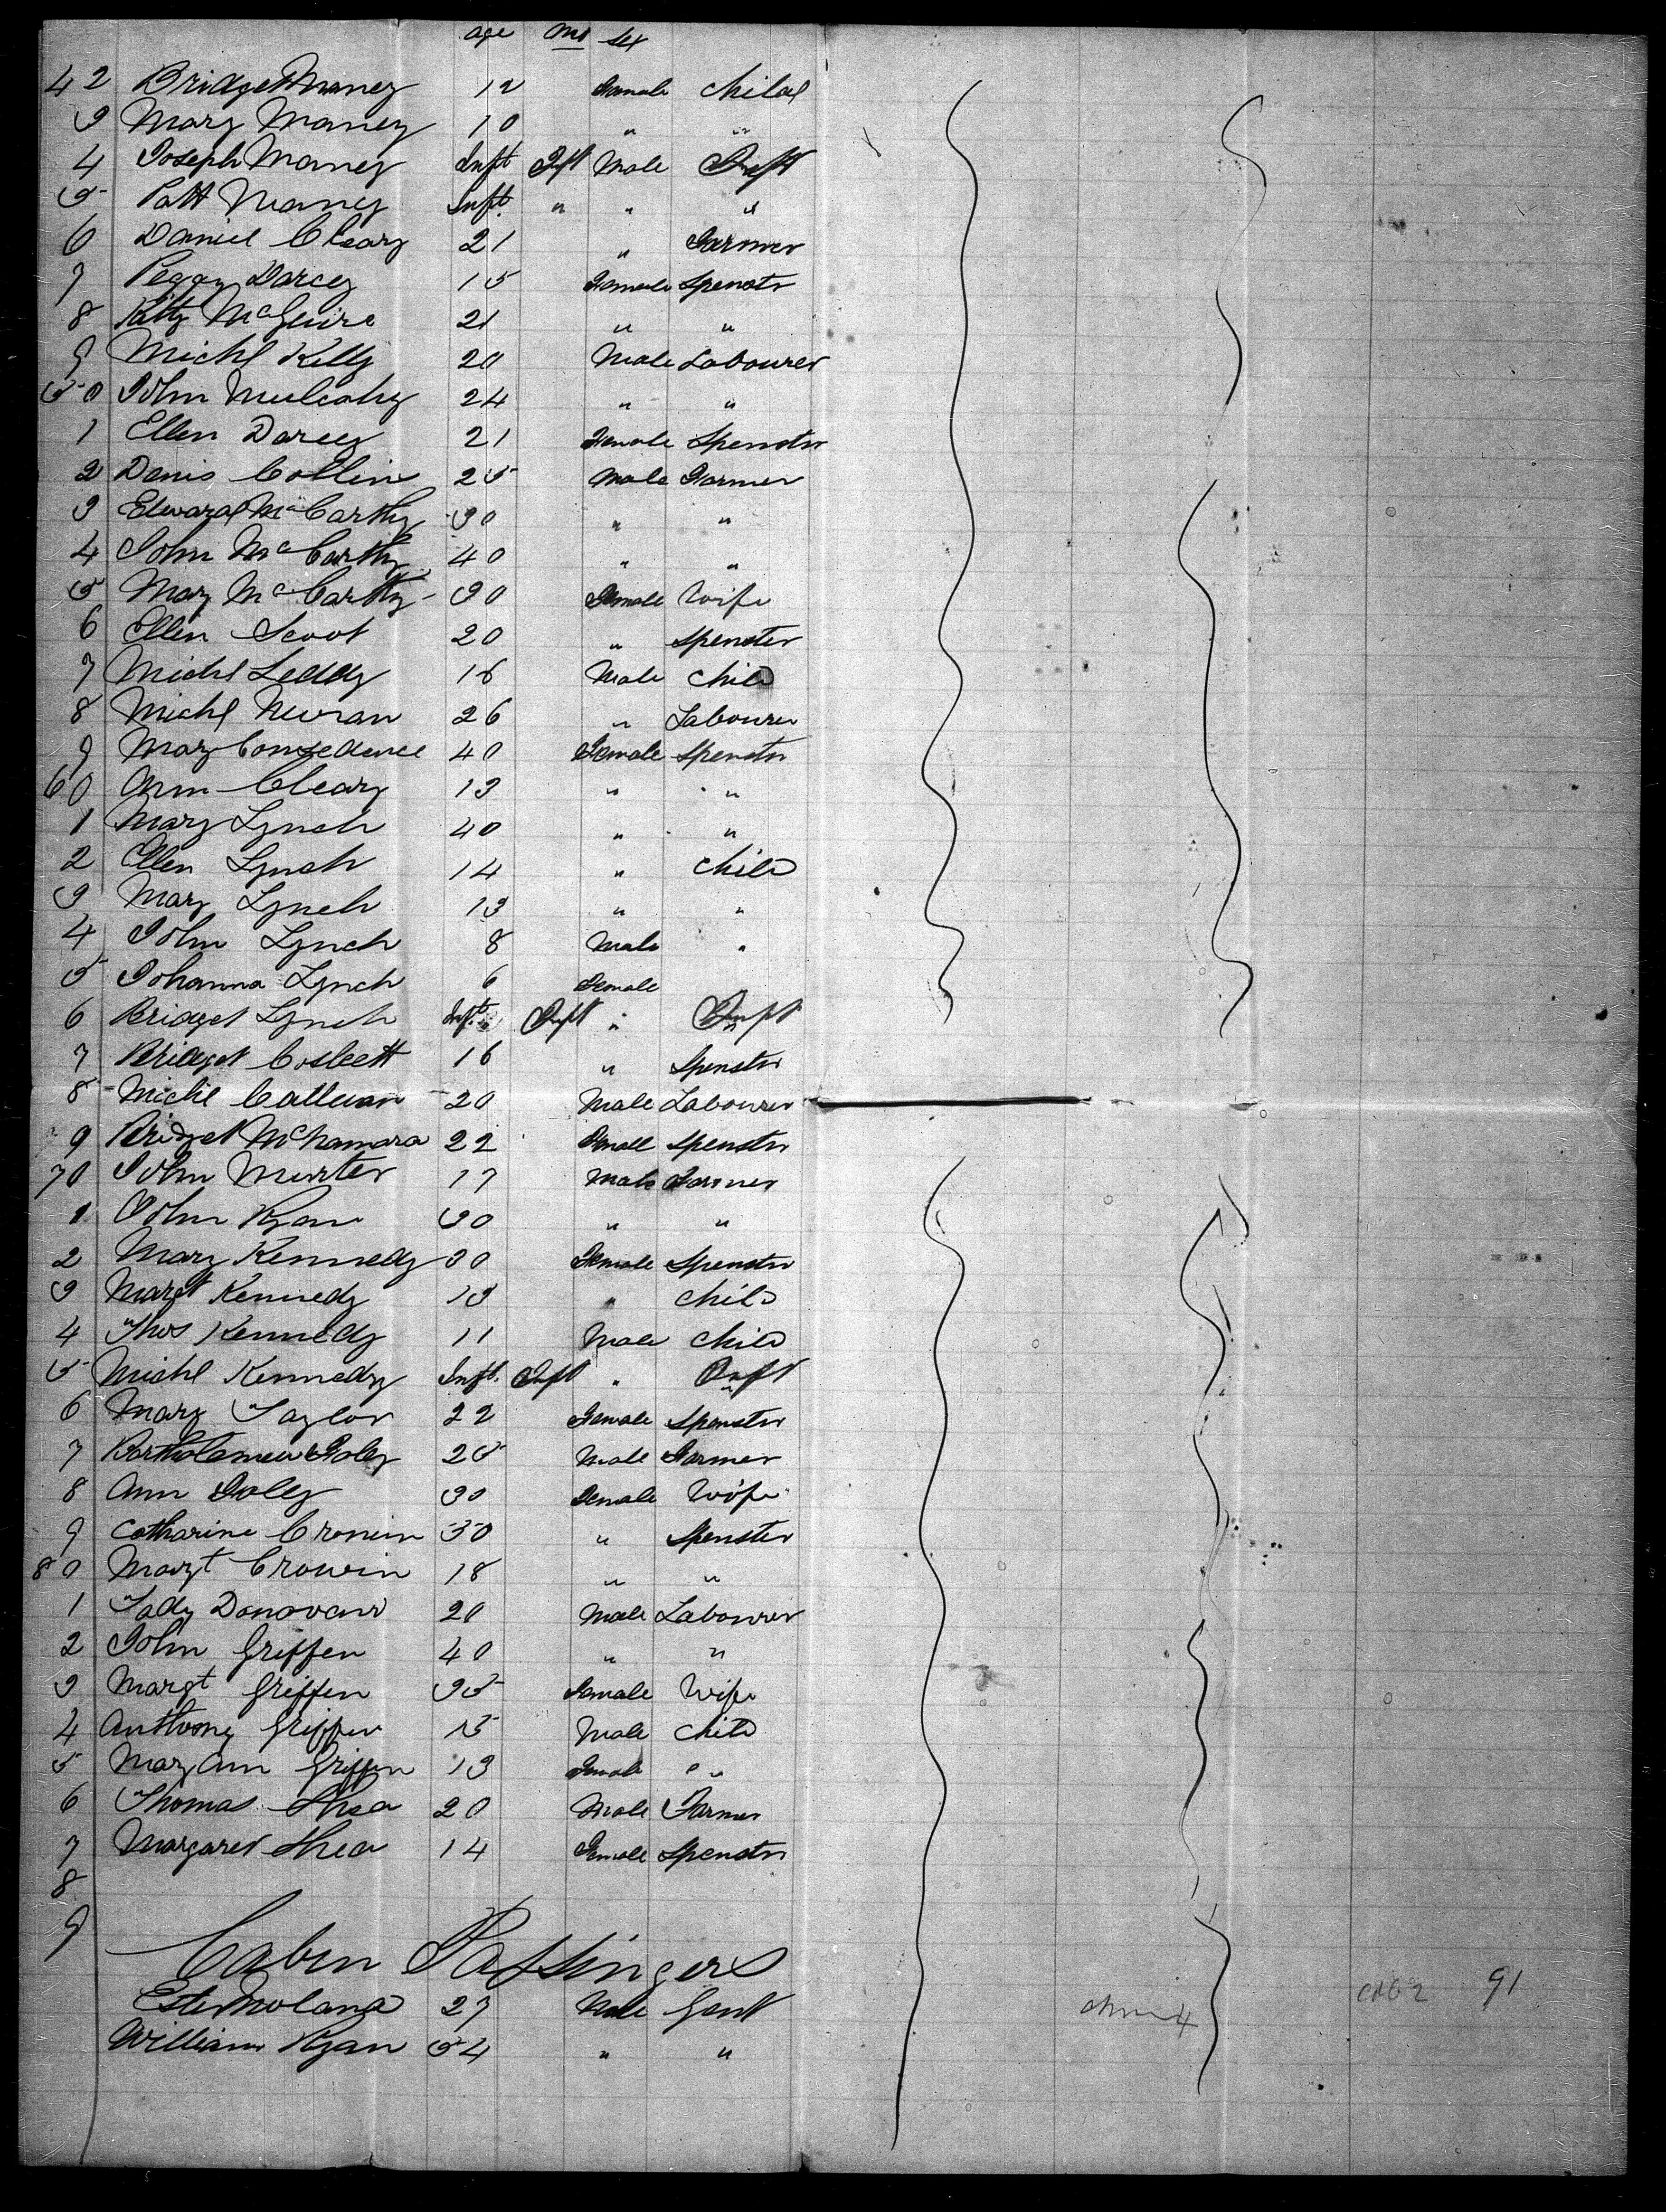 age mo sex
42 Bridget Maney 12 Female Child
3 Mary Maney 10 " "
4 Joseph Maney Inft Inft Male Inft
5 Patt Maney Inft. " " "
6 Daniel Cleary 21 " Farmer
7 Peggy Darcey 15 Female Spenstr
8 Kitty McGuire 21 " "
9 Michl Kelly 20 Male Labourer
50 John Mulcahy 24 " "
1 Ellen Darcey 21 Female Spenstr
2 Denis Collins 25 Male Farmer
3 Edward McCarthy 30 " "
4 John McCarthy 40 " "
5 Mary McCarthy 30 Female Wife
6 Ellen Scoot 20 " Spenster
7 Michl Leddy 16 Male Child
8 Michl 26 " Labourer
9 Mary 40 Female Spenstr
60 Ann Cleary 13 " "
1 Mary Lynch 40 " "
2 Ellen Lynch 14 " Child
3 Mary Lynch 13 " "
4 John Lynch 8 Male "
5 Johanna Lynch 6 Female
6 Bridget Lynch Inft. Inft " Inft
7 Bridget 16 " Spenstr
8 Michl 20 Male Labourer
9 Bridget McNamara 22 Female Spenstr
70 John 17 Male Farmer
1 John Ryan 30 " "
2 Mary Kennedy 30 Female Spenstr
3 Margt Kennedy 13 " Child
4 Thos Kennedy 11 Male Child
5 Michl Kennedy Inft. Inft " Inft
6 Mary Taylor 22 Female Spenstr
7 Bartholamew Foley 25 Male Farmer
8 Ann Foley 30 Female Wife
9 Catharine Cronin 50 " Spenster
80 Margt Cronin 18 " "
1 Tady Donovan 20 Male Labourer
2 John Griffen 40 " "
3 Margt Griffen 35 Female Wife
4 Anthony Griffen 15 Male Child
5 Mary Ann Griffen 13 Female " "
6 Thomas Shea 20 Male Farmer
7 Margaret Shea 14 Female Spenstr
8
9
Cabin Passingers
27 Male Gent
William Ryan 54 " "
91